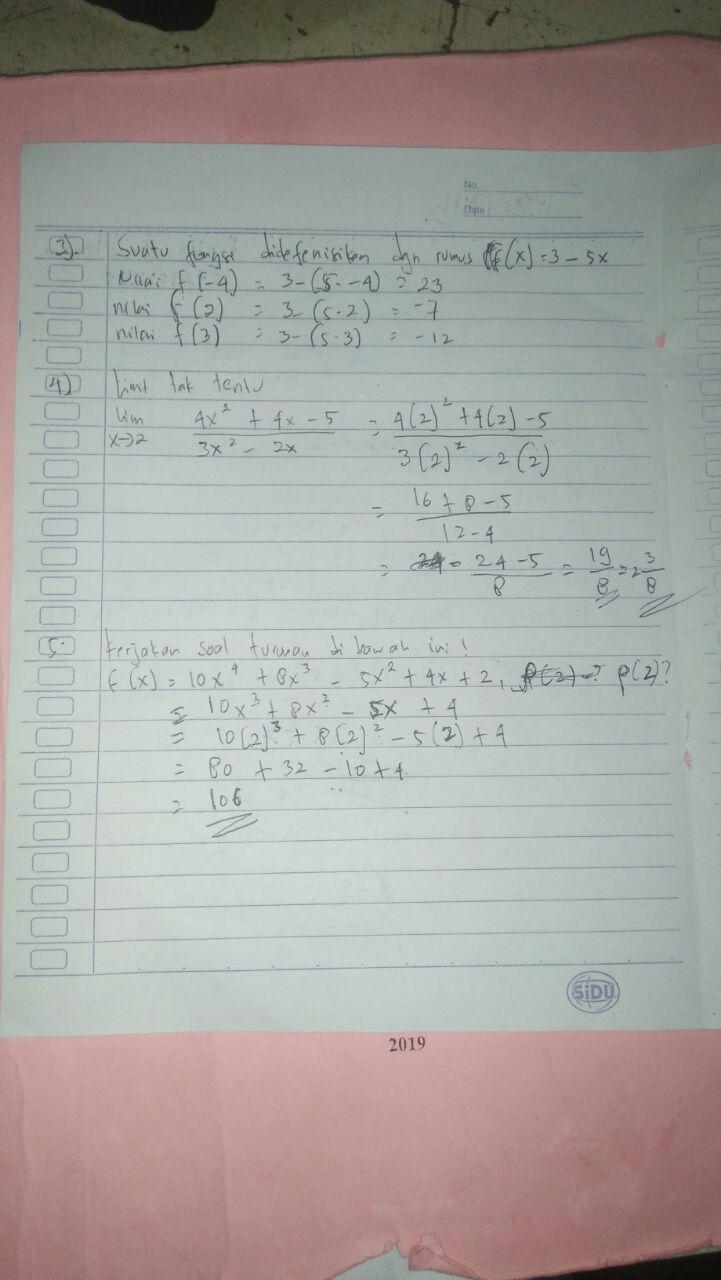 No.
Date:
3). Suatu fungsi didefenisikan dgn rumus f(x) = 3 - 5x
Nilai f(-4) = 3-(5.-4) = 23
nilai f(2) = 3-(5.2) = -7
nilai f(3) = 3-(5.3) = -12
4) Limit tak tentu
lim x→2 4x² + 4x - 5 / 3x² - 2x = 4(2)² + 4(2) - 5 / 3(2)² - 2(2)
= 16 + 8 - 5 / 12 - 4
= 24 - 5 / 8 = 19 / 8 = 2 3/8
5. Kerjakan soal turunan di bawah ini!
f(x) = 10x⁴ + 8x³ - 5x² + 4x + 2, p(2)?
= 10x³ + 8x² - 5x + 4
= 10(2)³ + 8(2)² - 5(2) + 4
= 80 + 32 - 10 + 4
= 106
SiDU
2019